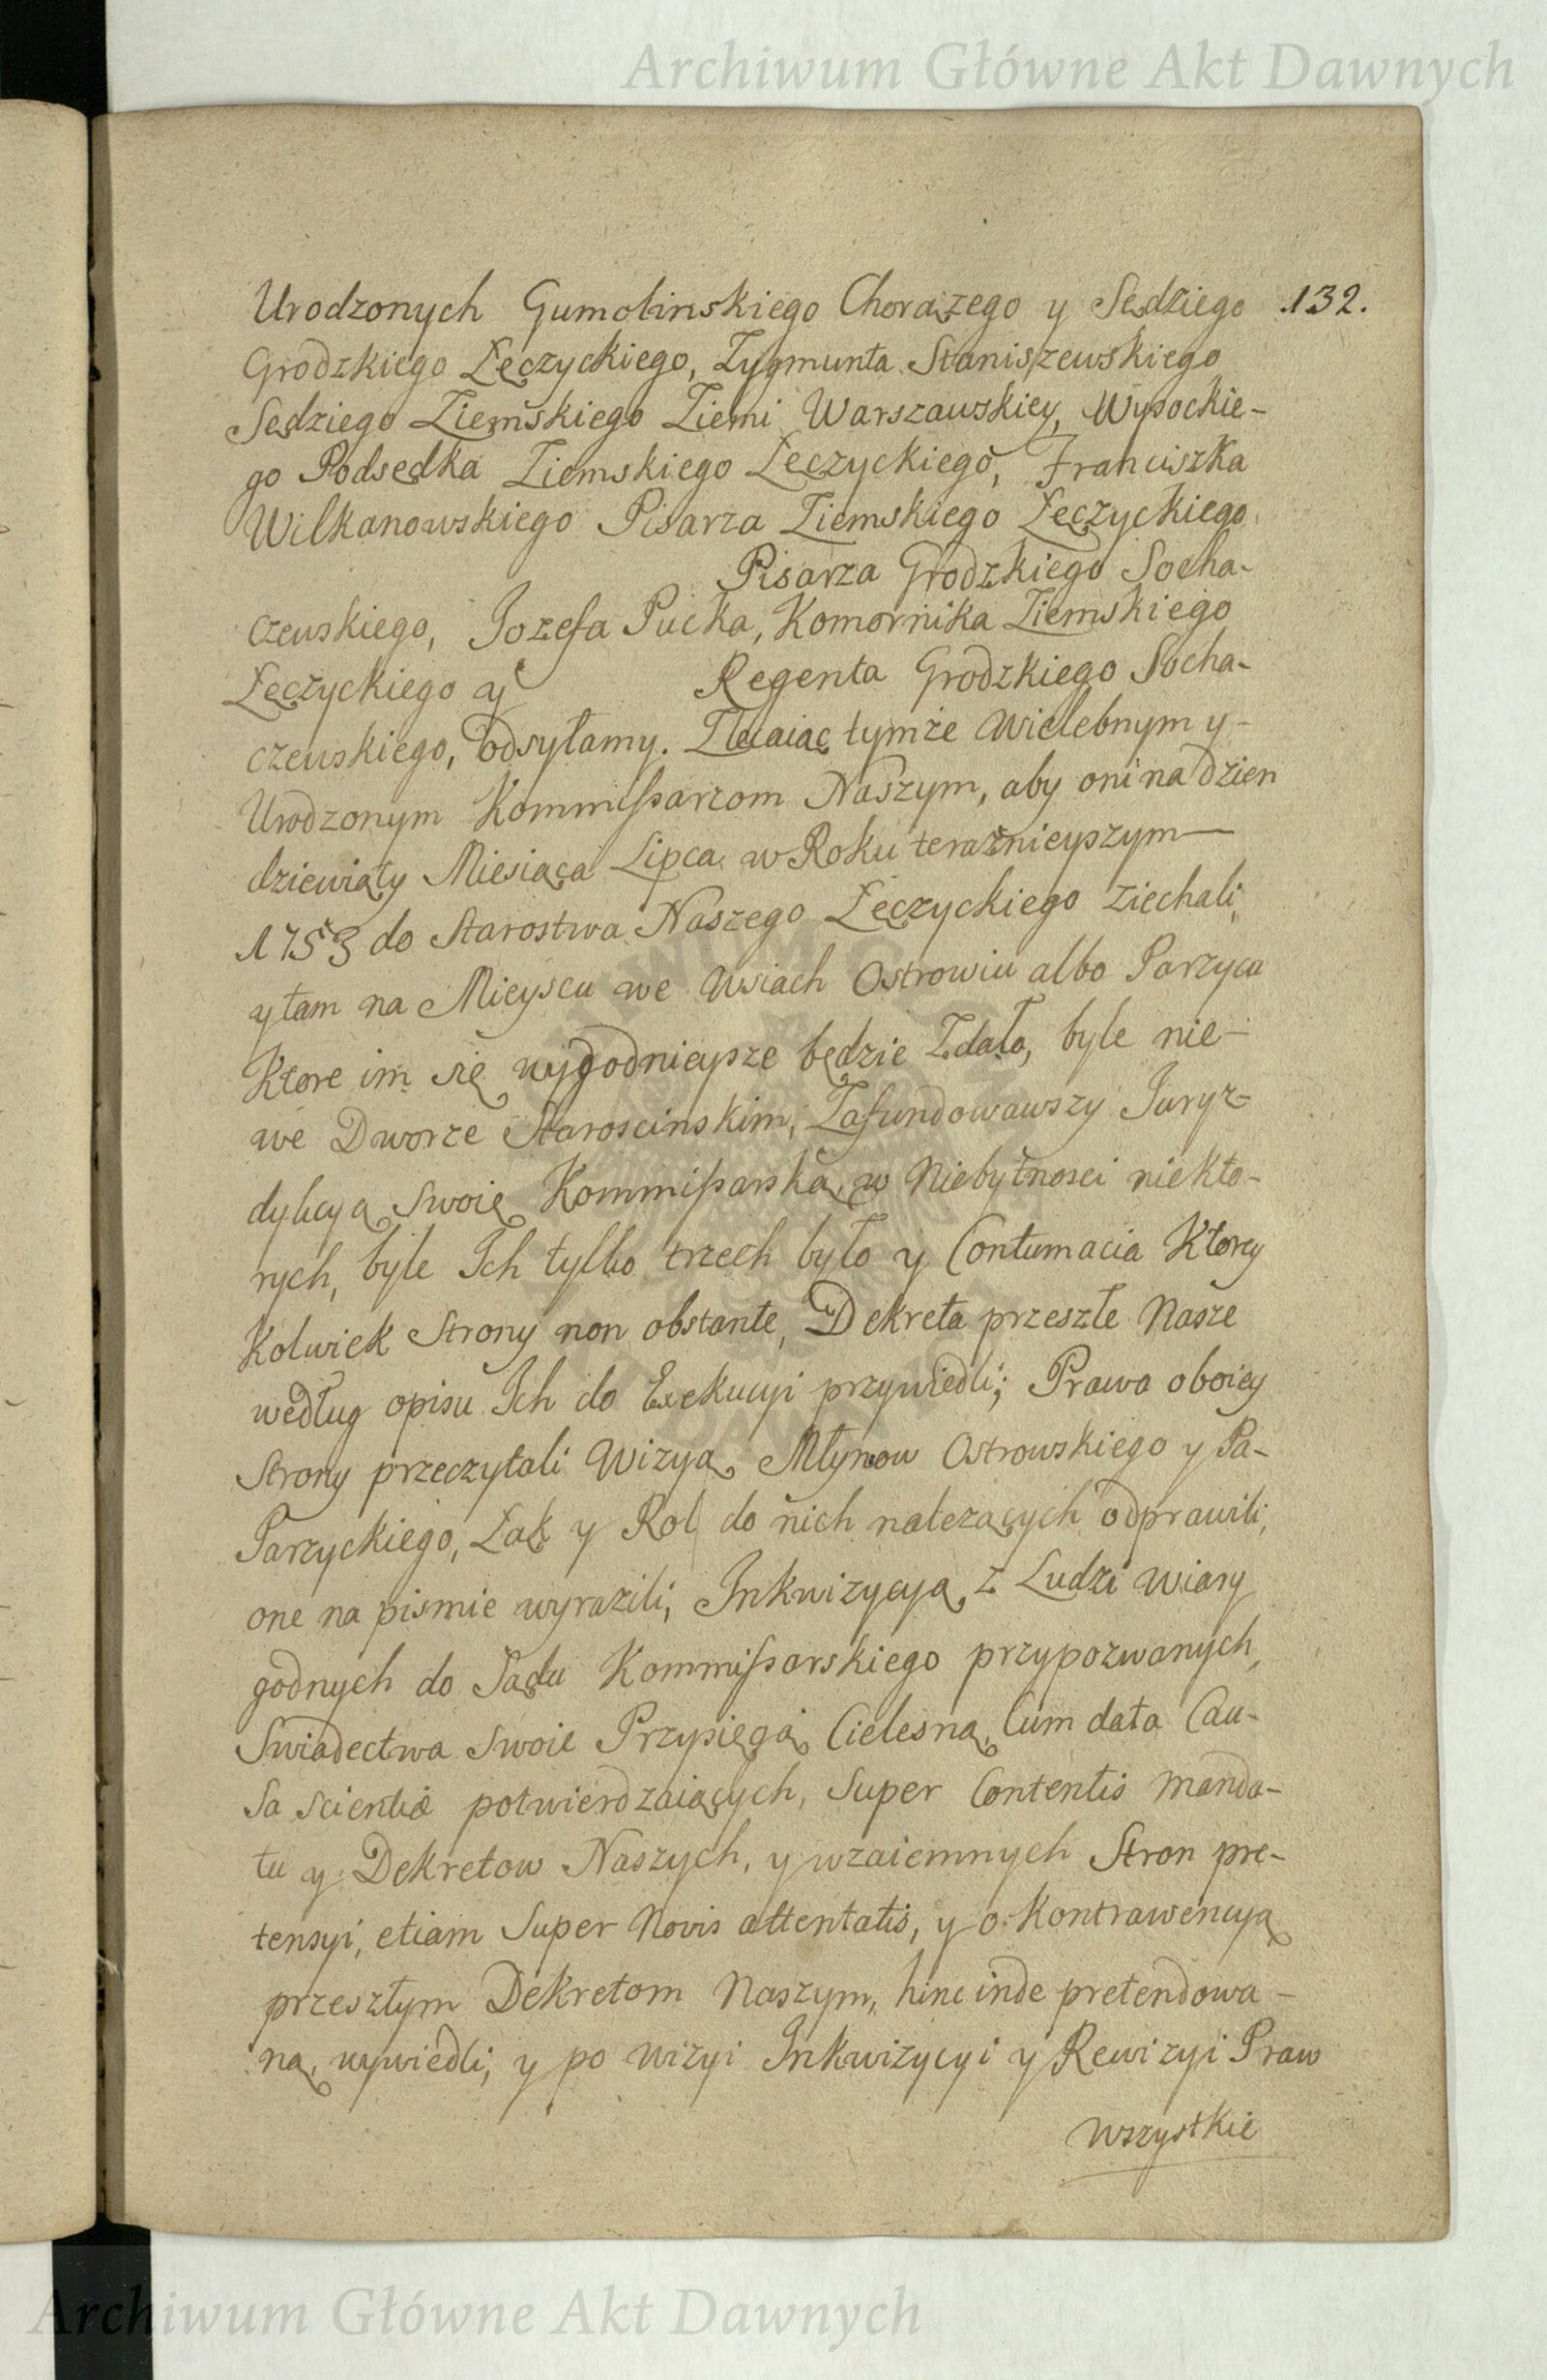 Archiwum Główne Akt Dawnych
Urodzonych Gumolinskiego Chorążego y Sędziego 132.
Grodzkiego Łęczyckiego, Zygmunta Staniszewskiego
Sędziego Ziemskiego Ziemi Warszawskiey, Wysockie-
go Podsędka Ziemskiego Łęczyckiego, Franciszka
Wilkanowskiego Pisarza Ziemskiego Łęczyckiego
Pisarza Grodzkiego Socha-
czewskiego, Jozefa Pucka, Komornika Ziemskiego
Łęczyckiego y Regenta Grodzkiego Socha-
czewskiego, odsyłamy. Zlecaiąc tymże Wielebnym y
Urodzonym Kommissarzom Naszym, aby oni na dzien
dziewiąty Miesiąca Lipca w Roku teraźnieyszym
1753 do Starostwa Naszego Łęczyckiego ziechali,
y tam na Mieyscu we Wsiach Ostrowiu albo Parzyca
Ktore im się wygodnieysze będzie Zdało, byle nie
we Dworze Staroscinskim, Zafundowawszy Juryz-
dykcyą Swoię Kommissarską, w Niebytnosci niekto-
rych, byle Ich tylko trzech było y Contumacia Ktorey
Kolwiek Strony non obstante, Dekreta przeszłe Nasze
według opisu Ich do Exekucyi przywiedli; Prawa oboiey
Strony przeczytali Wizyą Młynow Ostrowskiego y Pa-
Parzyckiego, Łąk y Rol do nich należących odprawili,
one na pismie wyrazili, Inkwizycyą z Ludzi wiary
godnych do Sądu Kommissarskiego przypozwanych,
Swiadectwa Swoie Przysięgą Cielesną, Cum data Cau-
sa scientiæ potwierdzaiących, Super Contentis Manda-
tu y Dekretow Naszych, y wzaiemnych Stron pre-
tensyi, etiam Super Novis attentatis, y o Kontrawencyą
przeszłym Dekretom Naszym, hinc inde pretendowa-
ną, wywiedli; y po wizyi Inkwizycyi y Rewizyi Praw
wszystkie
Archiwum Główne Akt Dawnych